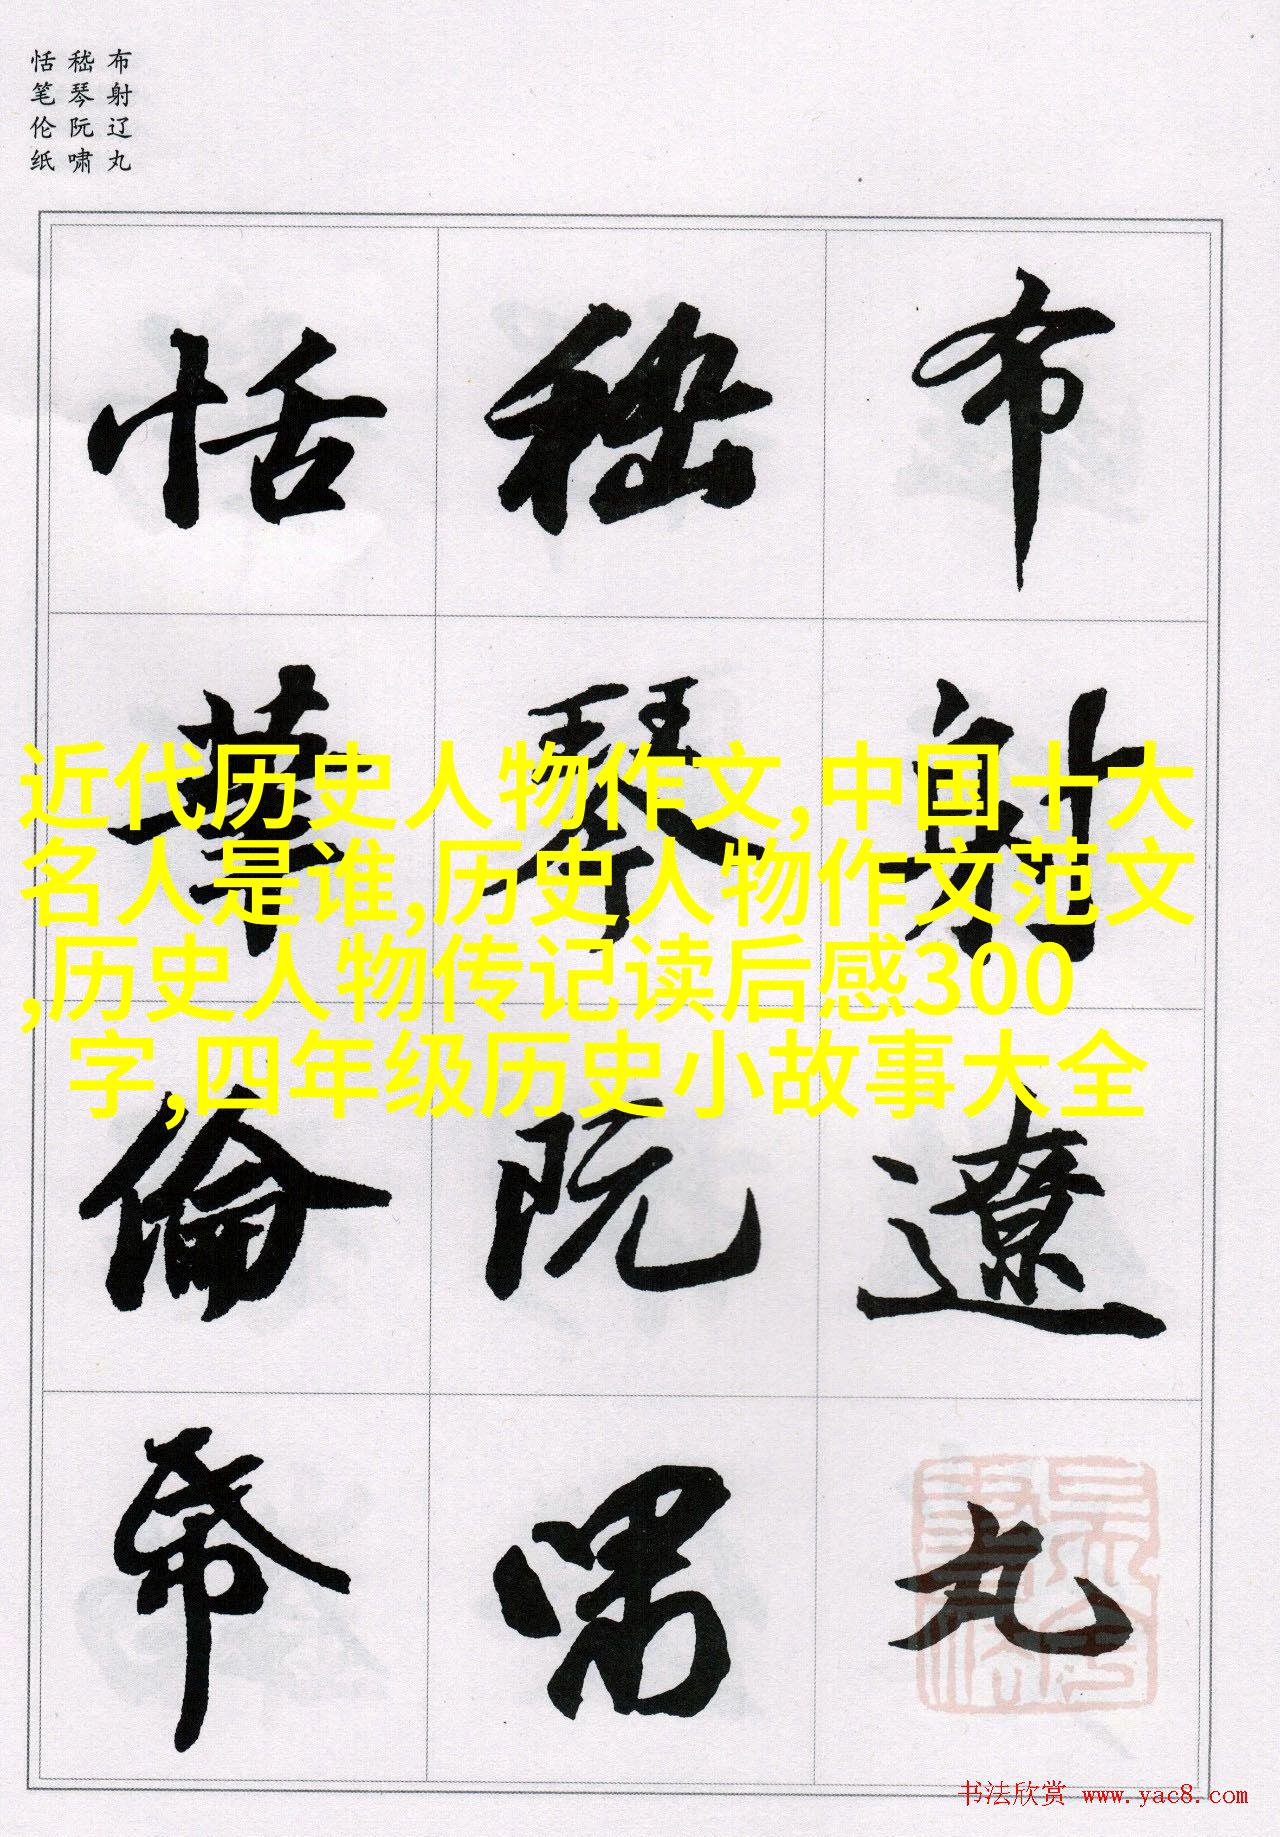 布射辽丸
嵇琴阮啸
恬笔伦纸
布射遼丸
嵇琴阮嘯
恬筆倫帋
近代历史人物作文,中国十大
名人是谁,历史人物作文范文
,历史人物传记读后感300
字,四年级历史小故事大全
书法欣赏 www.yac8.com